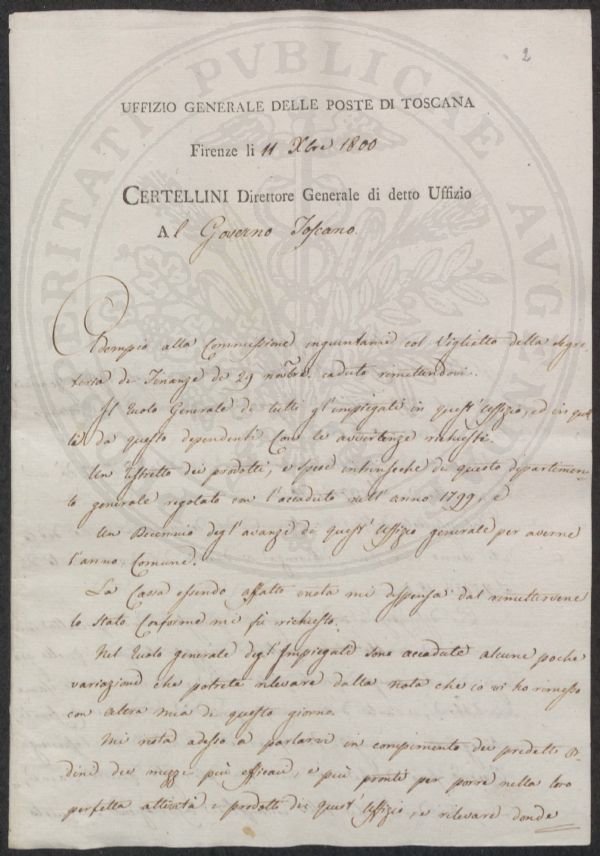 2
UFFIZIO GENERALE DELLE POSTE DI TOSCANA
Firenze li 11 Xbre 1800
CERTELLINI Direttore Generale di detto Uffizio
Al Governo Toscano.
Adempio alla Commissione ingiuntami col Viglietto della Segre
teria di Finanze de 29 novbre. caduto rimettendovi.
Il Ruolo Generale di tutti gl'impiegati in quest'Uffizio, ed in quel
li da questo dependenti con le avvertenze richiesti.
Un Ristretto dei prodotti, e spese intrinseche di questo dipartimen-
to generale regolato con l'accaduto nell'anno 1799, e
Un Decennio degl'avanzi di quest'Uffizio generale per averne
l'anno Comune.
La Cassa essendo affatto vuota mi dispensa dal rimettervene
lo Stato Conforme mi fù richiesto.
Nel Ruolo generale degl'Impiegati sono accadute alcune poche
variazioni che potrete rilevare dalla nota che io vi ho rimesso
con altra mia di questo giorno.
Mi resta adesso a parlarvi in compimento dei predetti Or
dini dei mezzi più efficaci, e più pronti per porre nella loro
perfetta attività i prodotti di quest'Uffizio, e rilevare donde